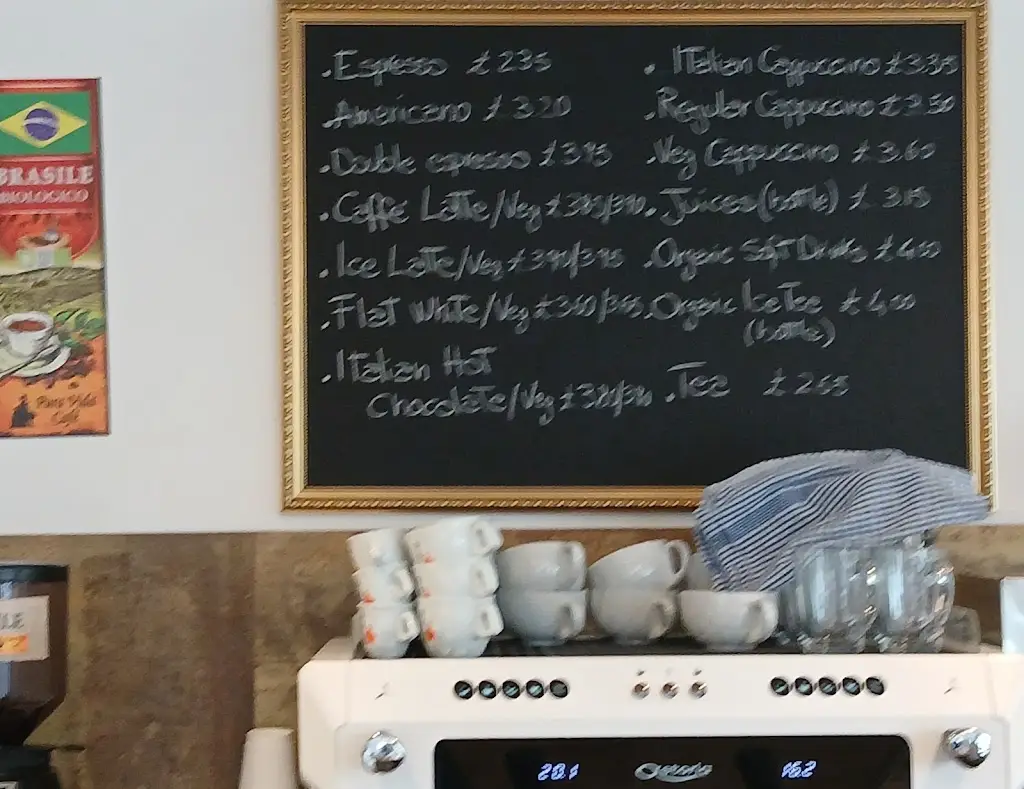 . Espresso £235
. Americano £3.20
. Double espresso £3.45
. Caffè Latte/Veg
. Ice Latte/Veg £390/395
. Flat White/Veg £360/365
. Italian Hot
Chocolate/Veg
. Italian Cappuccino £3.35
. Regular Cappuccino £3.50
. Veg Cappuccino £3.60
. Juices (bottle) £3.15
. Organic Soft Drinks
. Organic Ice Tea £4,00
(bottle)
. Tea £2.65
BRASILE
BIOLOGICO
Caffè
ILE
20.1
Astoria
16.2